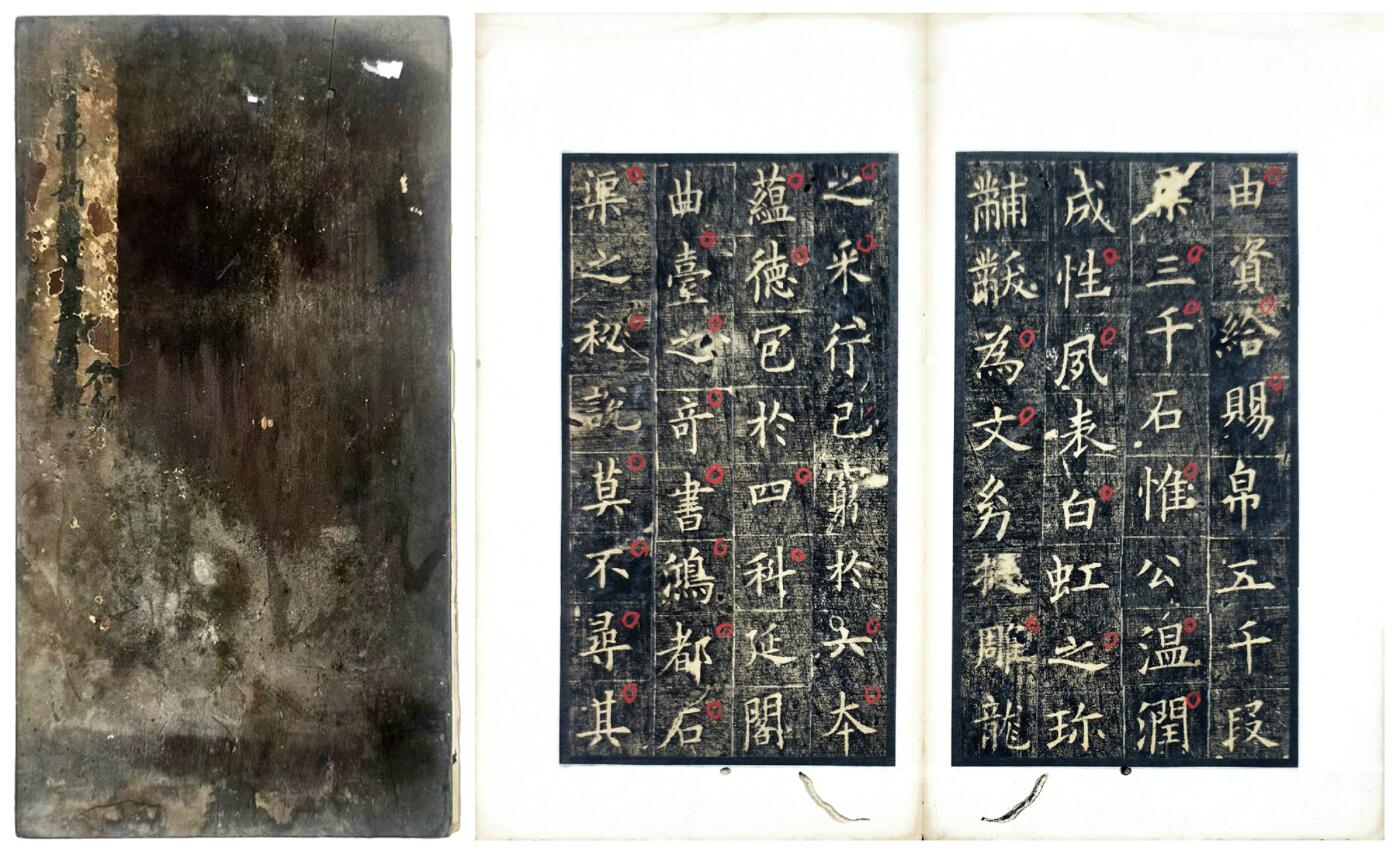 由資給賜帛五千段
三千石惟公溫潤
成性夙表白虹之珎
黼黻為文幼挺雕龍
之采行己窮於六本
蘊德包於四科延閣
曲臺之奇書鴻都石
渠之秘說莫不尋其